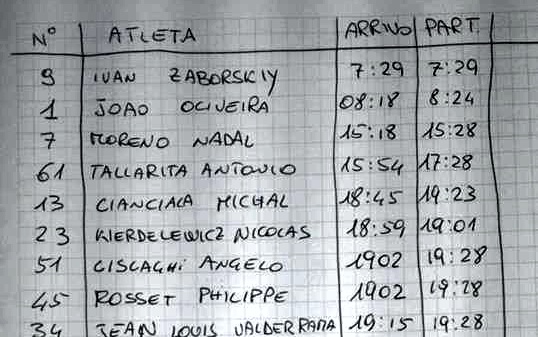 N° ATLETA ARRIVO PART.
9 IVAN ZABORSKIY 7:29 7:29
1 JOAO OLIVEIRA 08:18 8:24
7 MORENO NADAL 15:18 15:28
61 TALLARITA ANTONIO 15:54 17:28
13 CIANCIALA MICHAL 18:45 19:23
23 KIERDELEWICZ NICOLAS 18:59 19:01
51 CISLAGHI ANGELO 1902 19:28
45 ROSSET PHILIPPE 1902 19:28
34 JEAN LOUIS VALDERRAMA 19:15 19:28